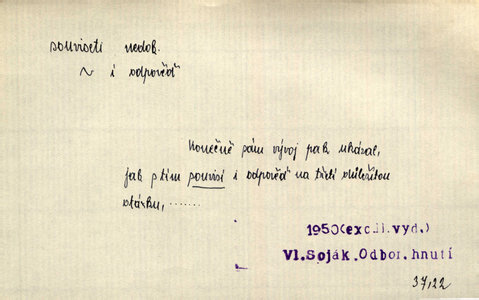 souviseti nedok.
~ i odpověď
Konečně sám vývoj pak ukázal,
jak s tím souvisí i odpověď na třetí důležitou
otázku, .......
1950(exc.II.vyd.)
Vl.Soják.Odbor.hnutí
37,22